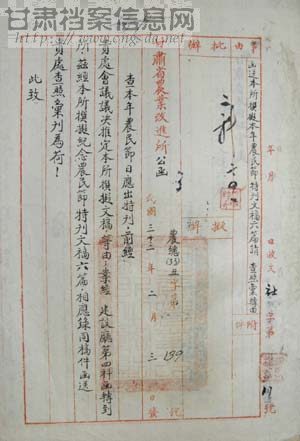 甘肃档案信息网
www.cngsda.net
事由
函送本所撰拟本年農民節特刊文稿六篇請查照彙轉由
批
擬辦
附件
年 月 日收文 字第 號
甘肅省農業改進所公函
農總(33)丑字第 139 號
民國三十三年二月三日發
查本年農民節日應出特刊前經
貴處會議議决推定本所撰擬文稿等由業經 建設廳第四科函轉到
所茲經本所撰擬紀念農民節特刊文稿六篇相應錄同稿件函送
貴處查照彙刊為荷！
此致